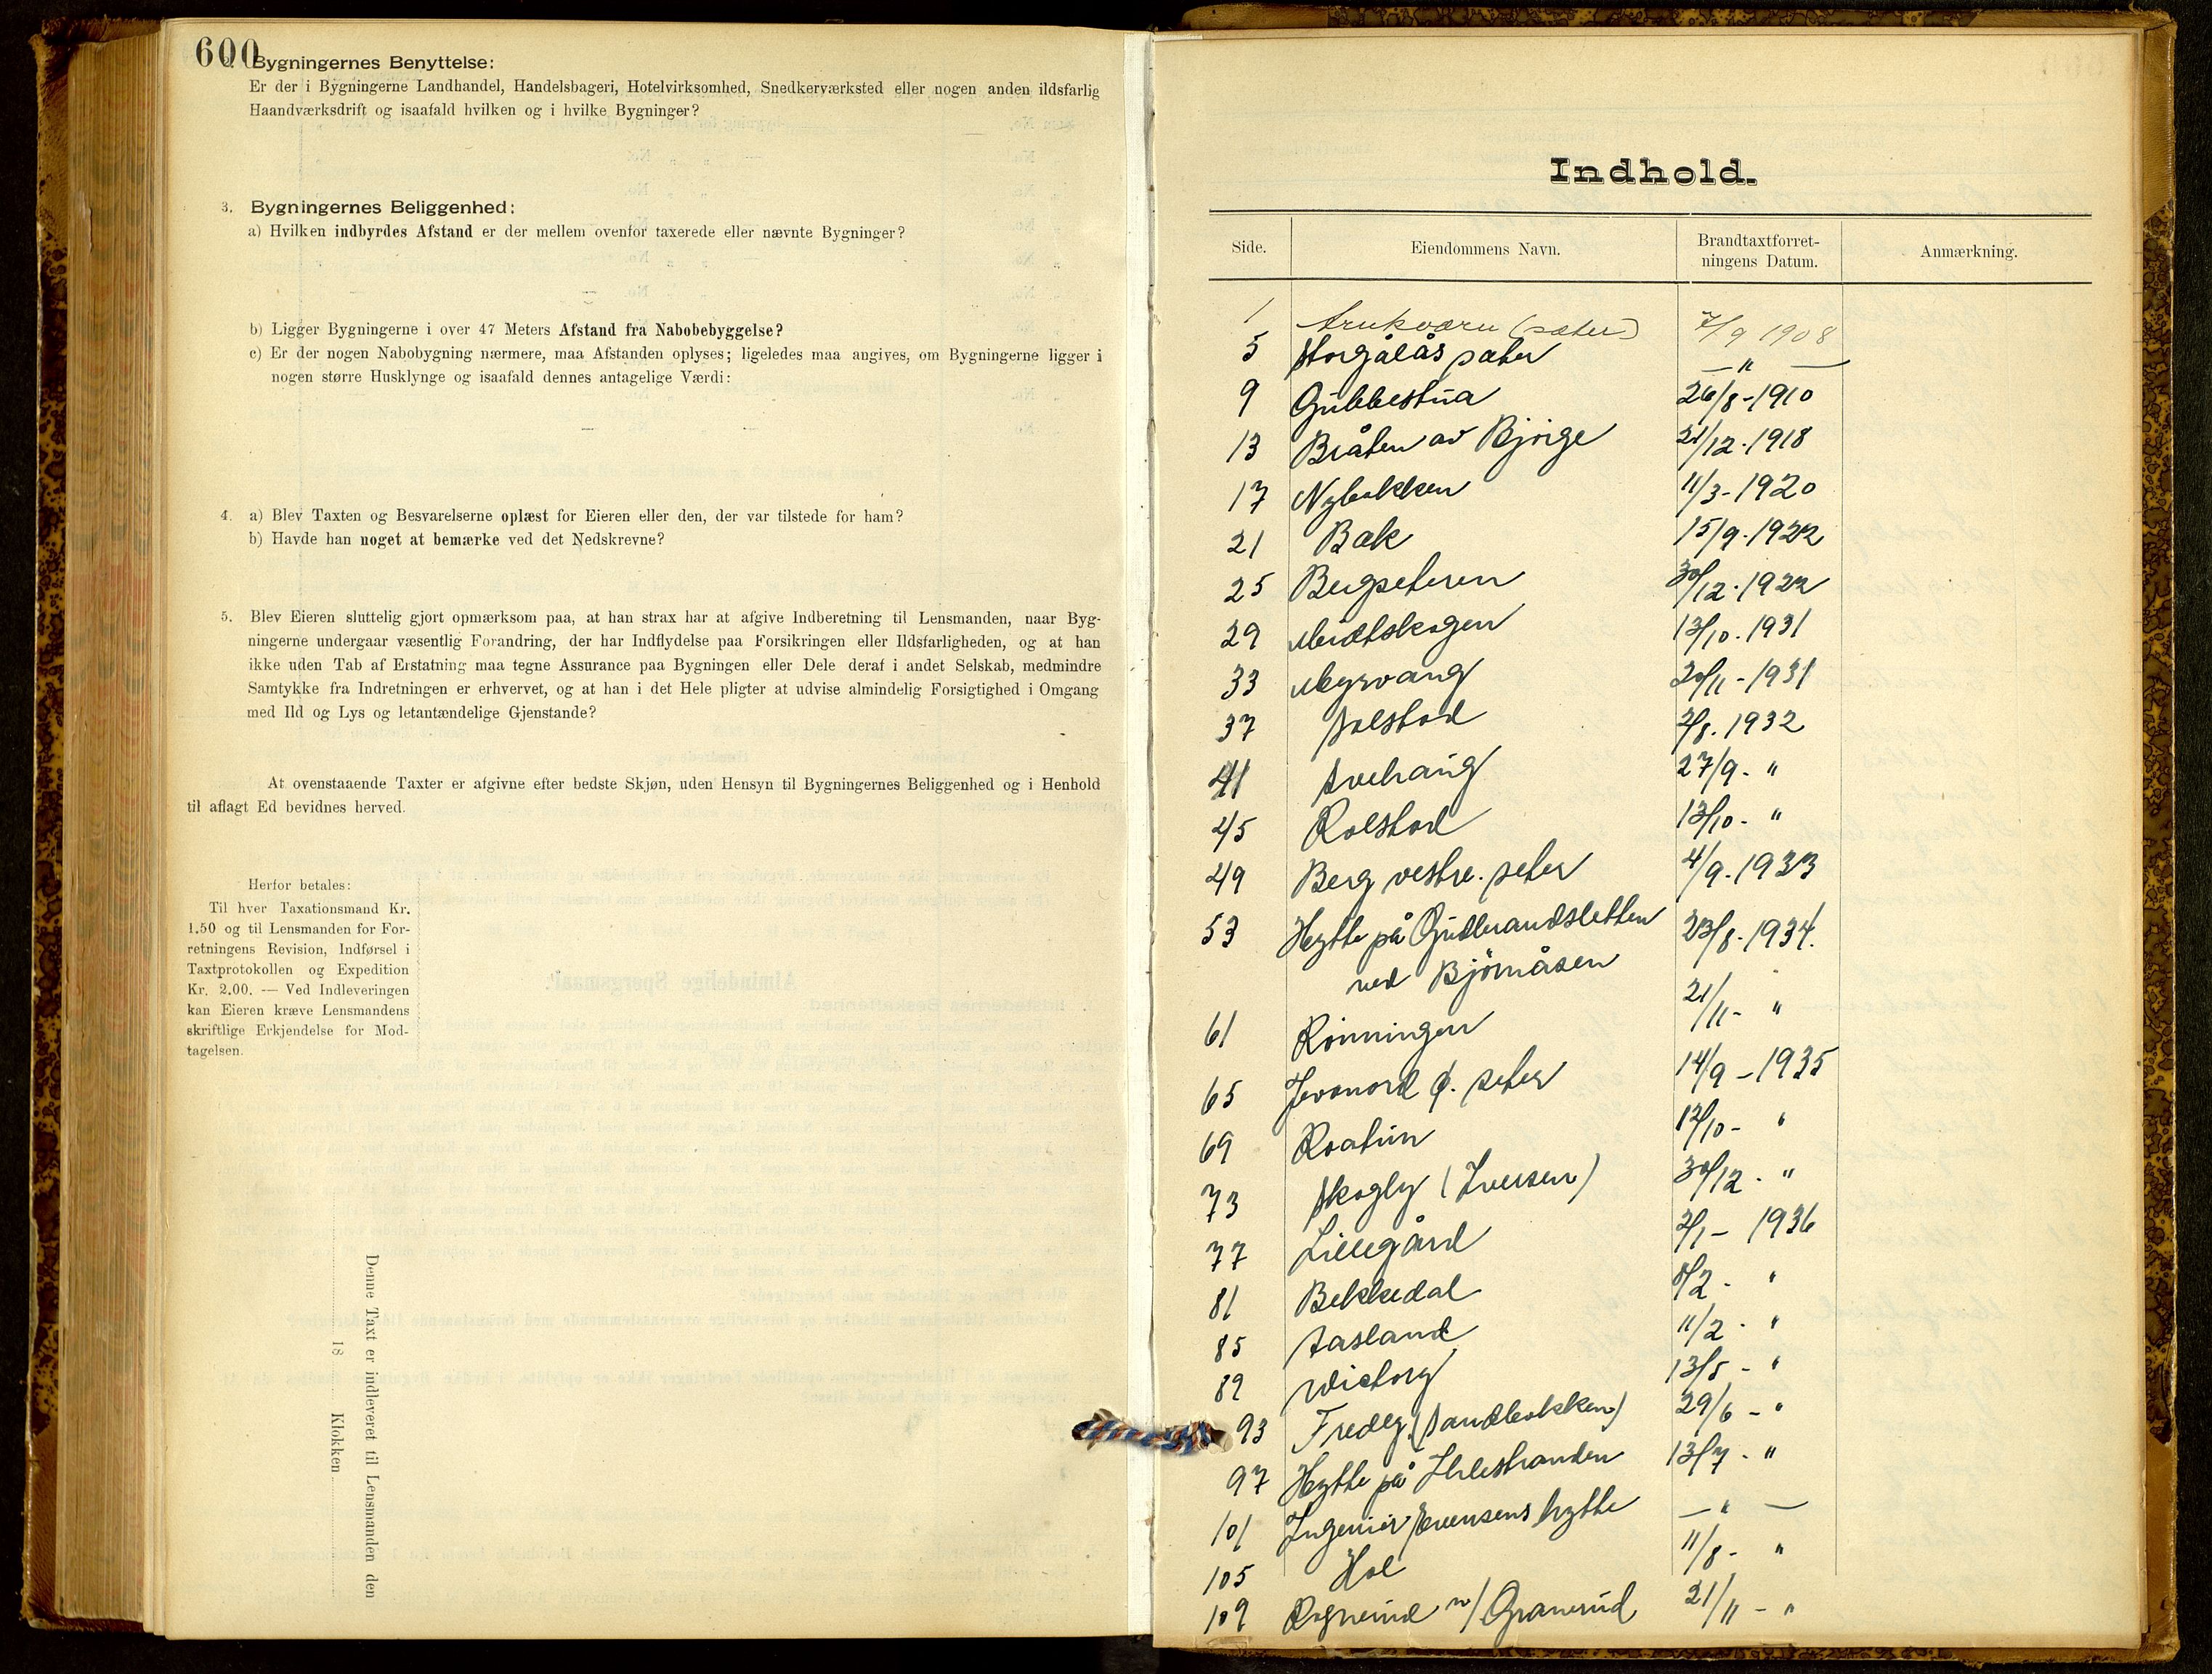 600
2. Bygningernes Benyttelse:
Er der i Bygningerne Landhandel, Handelsbageri, Hotelvirksomhed, Snedkerværksted eller nogen anden ildsfarlig
Haandværksdrift og isaafald hvilken og i hvilke Bygninger?
3. Bygningernes Beliggenhed:
a) Hvilken indbyrdes Afstand er der mellem ovenfor taxerede eller nævnte Bygninger?
b) Ligger Bygningerne i over 47 Meters Afstand fra Nabobebyggelse?
c) Er der nogen Nabobygning nærmere, maa Afstanden oplyses; ligeledes maa angives, om Bygningerne ligger i
nogen større Husklynge og isaafald dennes antagelige Værdi:
4. a) Blev Taxten og Besvarelserne oplæst for Eieren eller den, der var tilstede for ham?
b) Havde han noget at bemærke ved det Nedskrevne?
5. Blev Eieren sluttelig gjort opmærksom paa, at han strax har at afgive Indberetning til Lensmanden, naar Byg-
ningerne undergaar væsentlig Forandring, der har Indflydelse paa Forsikringen eller Ildsfarligheden, og at han
ikke uden Tab af Erstatning maa tegne Assurance paa Bygningen eller Dele deraf i andet Selskab, medmindre
Samtykke fra Indretningen er erhvervet, og at han i det Hele pligter at udvise almindelig Forsigtighed i Omgang
med Ild og Lys og letantændelige Gjenstande?
At ovenstaaende Taxter er afgivne efter bedste Skjøn, uden Hensyn til Bygningernes Beliggenhed og i Henhold
til aflagt Ed bevidnes herved.
Herfor betales:
Til hver Taxationsmand Kr.
1.50 og til Lensmanden for For-
retningens Revision, Indførsel i
Taxtprotokollen og Expedition
Kr. 2.00. — Ved Indleveringen
kan Eieren kræve Lensmandens
skriftlige Erkjendelse for Mod-
tagelsen.
Denne Taxt er indleveret til Lensmanden den
18 Klokken
Indhold.
Side. Eiendommens Navn. Brandtaxtforret-
ningens Datum. Anmærkning.
1 (sæter) 7/9 1908
5 Storgålås sæter — " —
9 Gubbestua 26/8-1910
13 Bråten av Bjørge 21/12.1918
17 Nybakken 11/3-1920
21 Bak 15/9.1922
25 Bergseteren 30/12.1922
29 Midtskogen 13/10.1931
33 Myrvang 20/11-1931
37 Solstad 2/8.1932
41 Svehaug 27/9. "
45 Rolstad 13/10- "
49 Berg vestre. seter 4/9.1933
53 Hytte på Gudbrandsletten 23/8.1934.
ved Bjørnåsen
61 Rønningen 21/11- "
65 Jevanord ø. seter 14/9-1935
69 Roatun 12/10- "
73 Skogly (Iversen) 30/12. "
77 Lillegård 2/1- 1936
81 Bekkedal 8/2. "
85 Aasland 11/2. "
89 Wiktory 13/5- "
93 Fredly (Sandbakken) 29/6- "
97 Hytte på 13/7. "
101 Ingeniør Evensens hytte — " —
105 Hol 11/8- "
109 Rognerud m/ Granerud 21/11- "